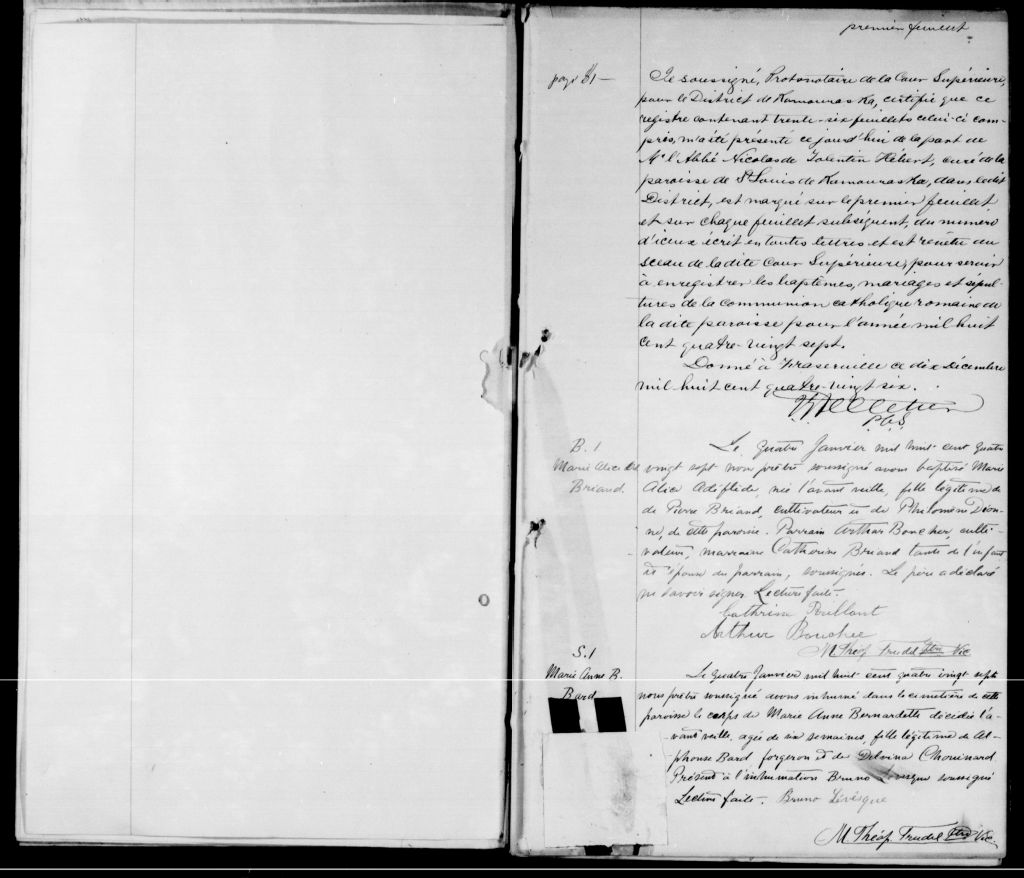 premier feuillet
page 1-
Je soussigné, Protonotaire de la Cour Supérieure,
pour le District de Kamouraska, certifie que ce
registre contenant trente-six feuillets celui-ci com-
pris, m'a été présenté ce jourd'hui de la part de
Mr l'Abbé Nicolas de Tolentin Hébert, curé de la
paroisse de St Louis de Kamouraska, dans le dit
District, est marqué sur le premier feuillet
et sur chaque feuillet subséquent, du numéro
d'iceux écrit en toutes lettres et est revêtu du
sceau de la dite Cour Supérieure, pour servir
à enregistrer les baptêmes, mariages et sépul-
tures de la communion catholique romaine de
la dite paroisse pour l'année mil huit
cent quatre-vingt sept.
Donné à Fraserville ce dix Décembre
mil huit cent quatre-vingt six.
Pelletier
P.C.S
B.1
Marie Alice Ad
Briand.
Le quatre Janvier mil huit cent quatre
vingt sept nous prêtre soussigné avons baptisé Marie
Alice Adeflide, née l'avant veille, fille légitime de
de Pierre Briand, cultivateur et de Philomène Dion-
ne, de cette paroisse. Parrain Arthur Boucher, culti-
vateur, marraine Catherine Briand tante de l'enfant
et épouse du parrain, soussignés. Le père a déclaré
ne savoir signer. Lecture faite.
Cathrine
Arthur Bouchee
M. Théop. Trudel Ptre Vic
S.1
Marie Anne B.
Bard
Le quatre Janvier mil huit cent quatre vingt sept
nous prêtre soussigné avons inhumé dans le cimetière de cette
paroisse le corps de Marie Anne Bernardette décédée l'a-
vant veille, agée de six semaines, fille légitime de Al-
phonse Bard forgeron et de Delvina Chouinard.
Présent à l'inhumation Bruno Levesque soussigné
Lecture faite. Bruno Lévesque
M. Théop. Trudel Ptre Vic.